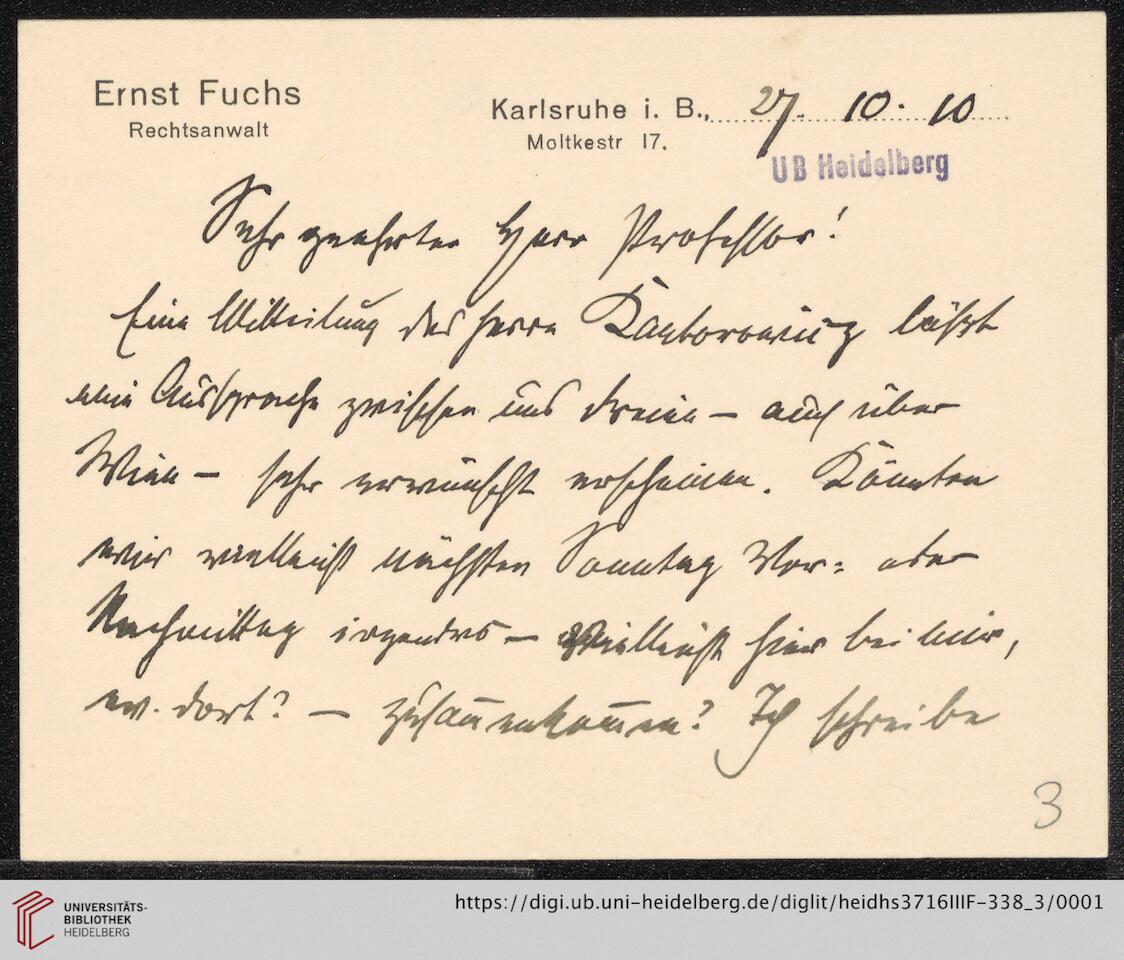 Ernst Fuchs
Rechtsanwalt
Karlsruhe i. B., 27. 10. 10
Moltkestr 17.
UB Heidelberg
Sehr geehrter Herr Professor!
Eine Mitteilung des Herrn Kantorowicz läßt
eine Aussprache zwischen uns dreien – auch über
Wien – sehr erwünscht erscheinen. Könnten
wir vielleicht nächsten Sonntag Vor= oder
Nachmittag irgendwo – vielleicht hier bei mir,
ev. dort? – zusammenkommen? Ich schreibe
3
UNIVERSITÄTS-
BIBLIOTHEK
HEIDELBERG
https://digi.ub.uni-heidelberg.de/diglit/heidhs3716IIIF-338_3/0001